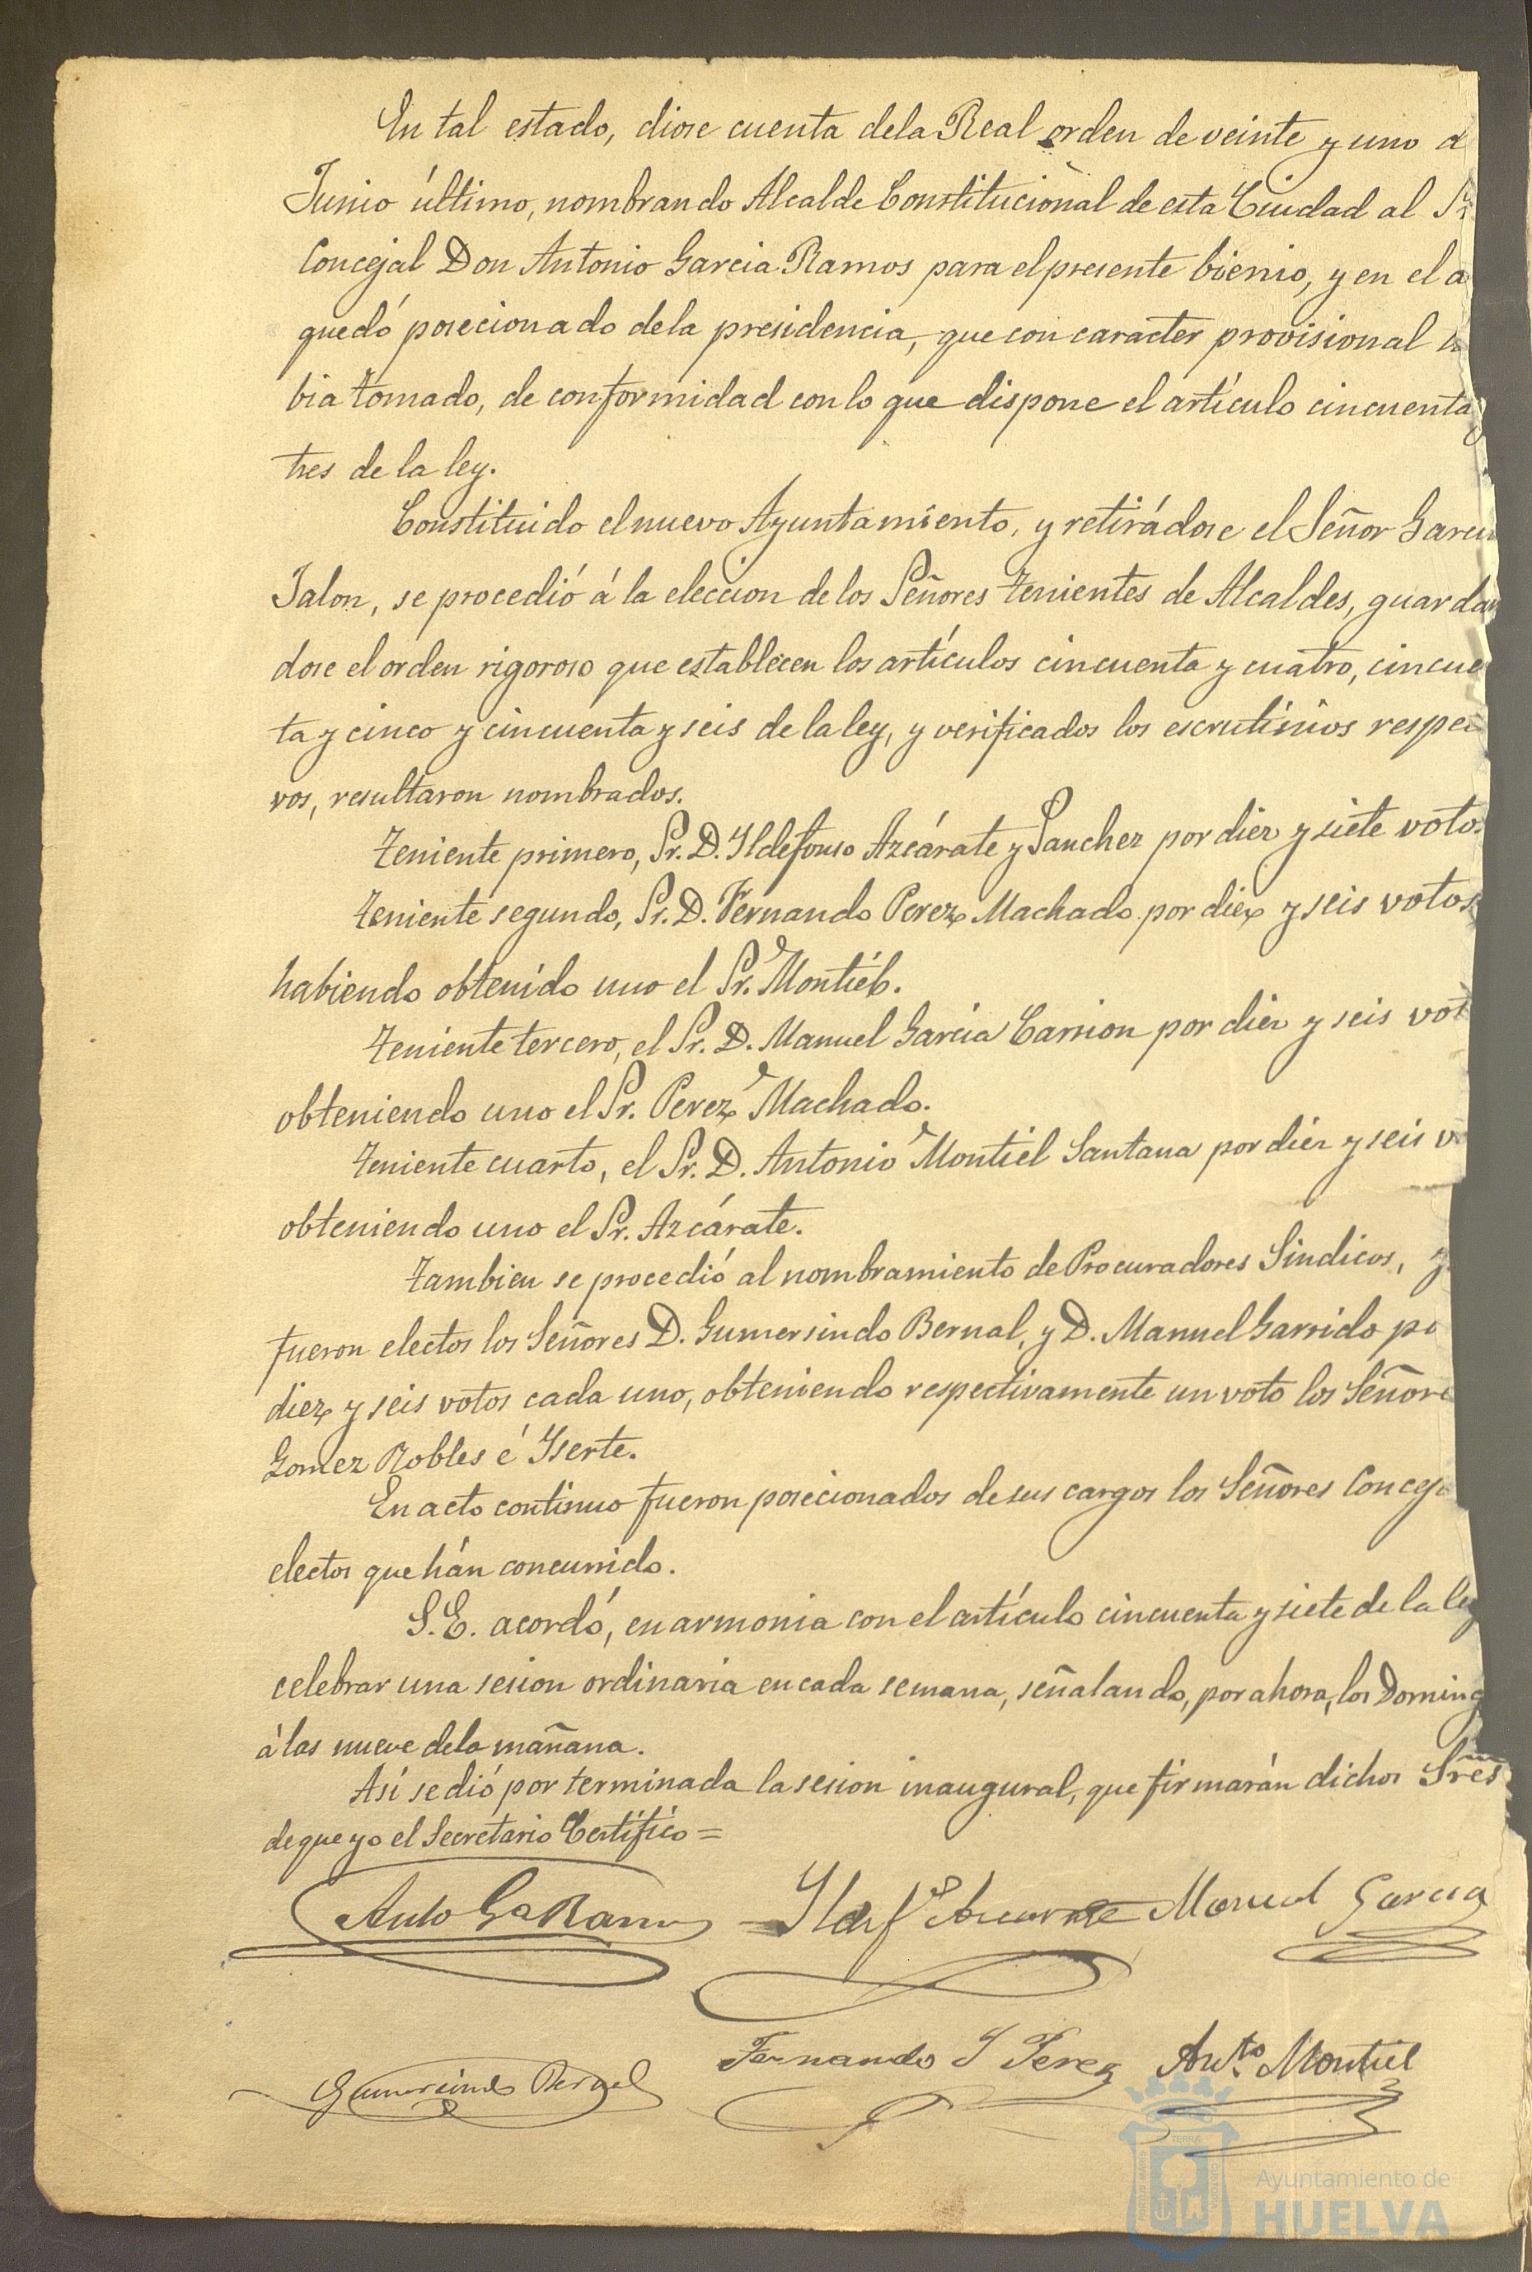 En tal estado, diose cuenta de la Real orden de veinte y uno d
Junio último, nombrando Alcalde Constitucional de esta Ciudad al Sr.
Concejal Don Antonio Garcia Ramos para el presente bienio, y en el a
quedó posecionado de la presidencia, que con caracter provisional
bia tomado, de conformidad con lo que dispone el artículo cincuenta y
tres de la ley.
Constituido el nuevo Ayuntamiento, y retirádose el Señor Garcia
Jalon, se procedió á la eleccion de los Señores Tenientes de Alcaldes, guardan
dose el orden rigoroso que establecen los artículos cincuenta y cuatro, cincue
ta y cinco y cincuenta y seis de la ley, y verificados los escrutinios respec
vos, resultaron nombrados.
Teniente primero, Sr. D. Yldefonso Azcárate y Sanchez por diez y siete votos
Teniente segundo, Sr. D. Fernando Perez Machado por diez y seis votos
habiendo obtenido uno el Sr. Montiél.
Teniente tercero, el Sr. D. Manuel Garcia Carrion por diez y seis vot
obteniendo uno el Sr. Perez Machado.
Teniente cuarto, el Sr. D. Antonio Montiél Santana por diez y seis v
obteniendo uno el Sr. Azcárate.
Tambien se procedió al nombramiento de Procuradores Sindicos, y
fueron electos los Señores D. Gumersindo Bernal, y D. Manuel Garrido po
diez y seis votos cada uno, obteniendo respectivamente un voto los Señore
Gomez Robles é Yserte.
En acto continuo fueron posecionados de sus cargos los Señores Conceja
electos que hán concurrido.
S.E. acordó, en armonia con el artículo cincuenta y siete de la ley
celebrar una sesion ordinaria en cada semana, señalando, por ahora, los Doming
á las nueve de la mañana.
Así se dió por terminada la sesion inaugural, que firmarán dichos Sres
de que yo el Secretario Certifico =
Anto Ga Ramos Yldefso Azcarate Manuel Garcia
Gumersindo Bernal Fernando Y Perez Anto Montiel
Ayuntamiento de
HUELVA